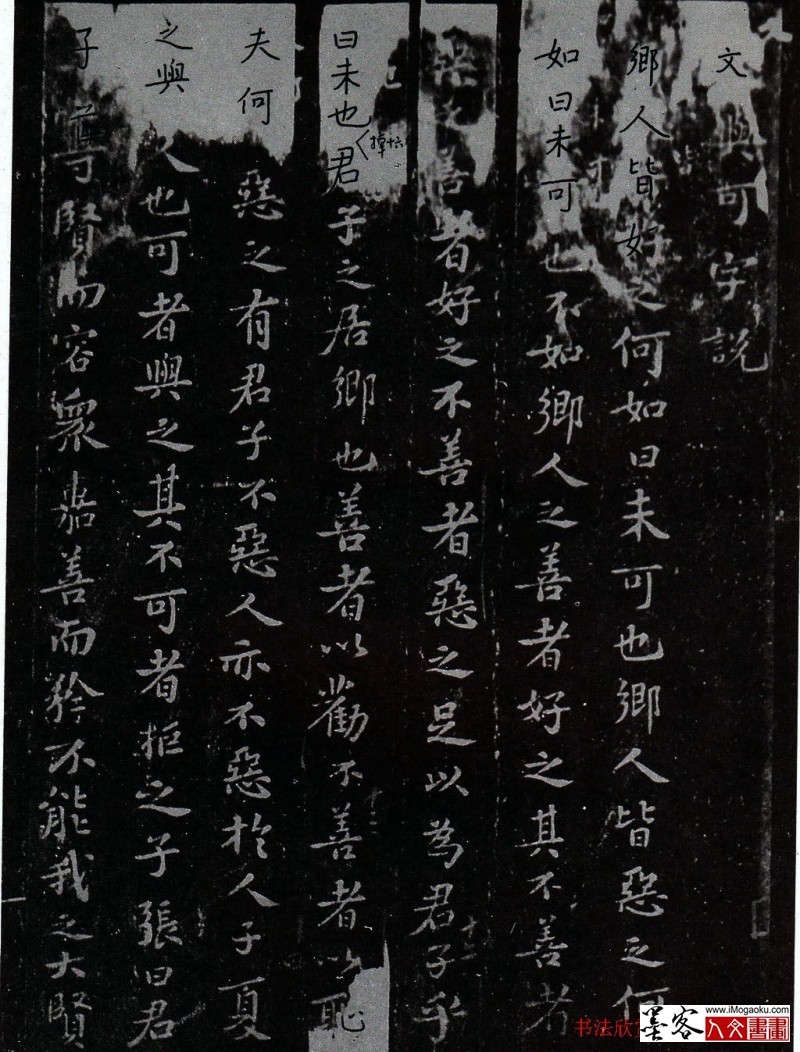 文與可字說
鄉人皆好之何如曰未可也鄉人皆惡之何
如曰未可也不如鄉人之善者好之其不善者
善者好之不善者惡之足以為君子乎
曰未也君子之居鄉也善者以勸不善者以恥
掉十六
夫何惡之有君子不惡人亦不惡於人子夏
之與人也可者與之其不可者拒之子張曰君
子尊賢而容衆嘉善而矜不能我之大賢
十三
十二
书法欣
墨客
www.iMogaoku.com
人文書畫